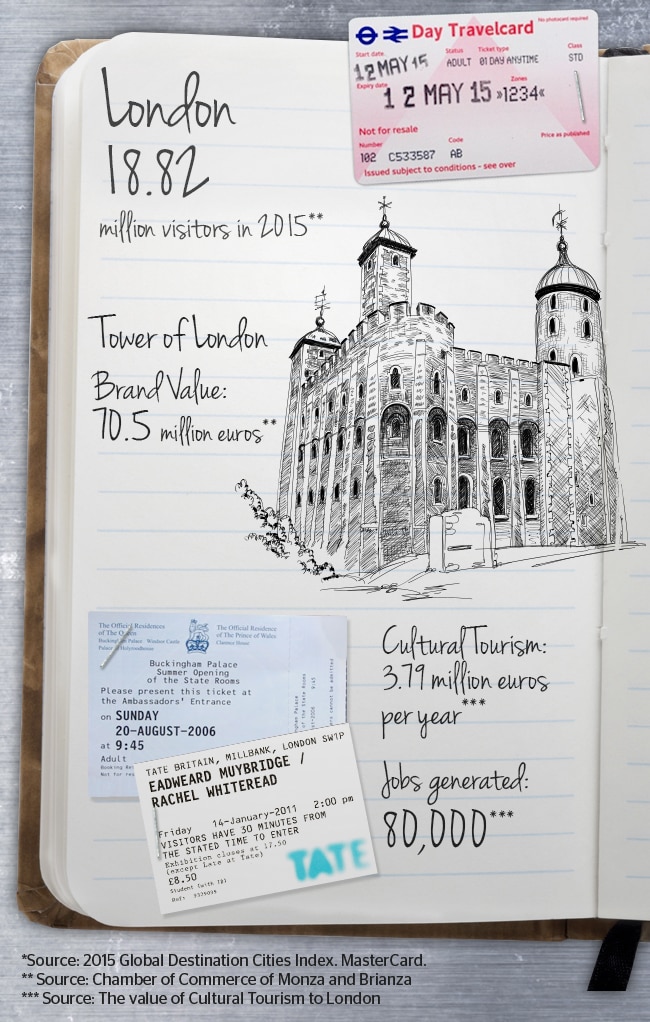 London
18.82
million visitors in 2015**
Day Travelcard
No photocard required
Start date
Status
Ticket type
Class
12 MAY 15
ADULT
01 DAY ANYTIME
STD
Expiry date
Zones
12 MAY 15 »1234«
Not for resale
Price as published
Number
Code
102 C533587 AB
Issued subject to conditions - see over
Tower of London
Brand Value:
70.5 million euros**
The Official Residences
of The Queen
Palace Windsor Castle
The Official Residence
of The Prince of Wales
Clarence House
Buckingham Palace
Summer Opening
of the State Rooms
Please present this ticket at
the Ambassadors' Entrance
on SUNDAY
20-AUGUST-2006
at 9:45
Adult
TATE BRITAIN, MILLBANK, LONDON SW1P
EADWEARD MUYBRIDGE /
RACHEL WHITEREAD
Friday 14-January-2011 2:00 pm
VISITORS HAVE 30 MINUTES FROM
THE STATED TIME TO ENTER
Exhibition closes at 17.50
(except Late at Tate)
£8.50
Student (with ID)
TATE
Cultural Tourism:
3.79 million euros
per year***
Jobs generated:
80,000***
*Source: 2015 Global Destination Cities Index. MasterCard.
** Source: Chamber of Commerce of Monza and Brianza
*** Source: The value of Cultural Tourism to London